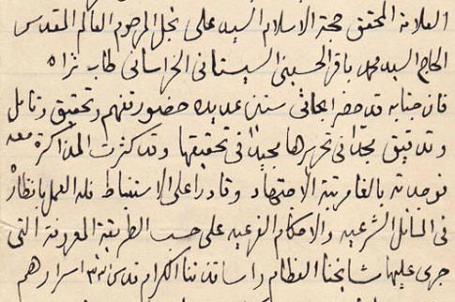 العلامة المحقق حجة الاسلام السيد علي نجل المرحوم العالم المقدس
الحاج السيد محمد باقر الحسيني السيستاني الخراساني طاب ثراه
قد حضر ابحاثي سنين عديده حضور تفهم وتحقيق وتأمل
وتدقيق مجدًّا في تحريرها مجيدًا في تحقيقها وقد كثرت المذاكرة معه
فوجدته بالغا مرتبة الاجتهاد وقادرا على الاستنباط فله العمل بانظاره
في المسائل الشرعيه والاحكام الفرعيه على حسب الطريقة المعروفة التي
جرى عليها مشايخنا العظام واساتذتنا الكرام قدس الله اسرارهم